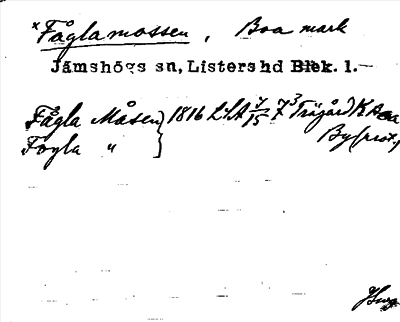 *Fåglamossen, Boa mark
Jämshögs sn, Listers hd Blek. l.
Fågla Måsen } 1816 LSA 7/15 7³ Trägård K Boa
Fogla " } By (prot.)